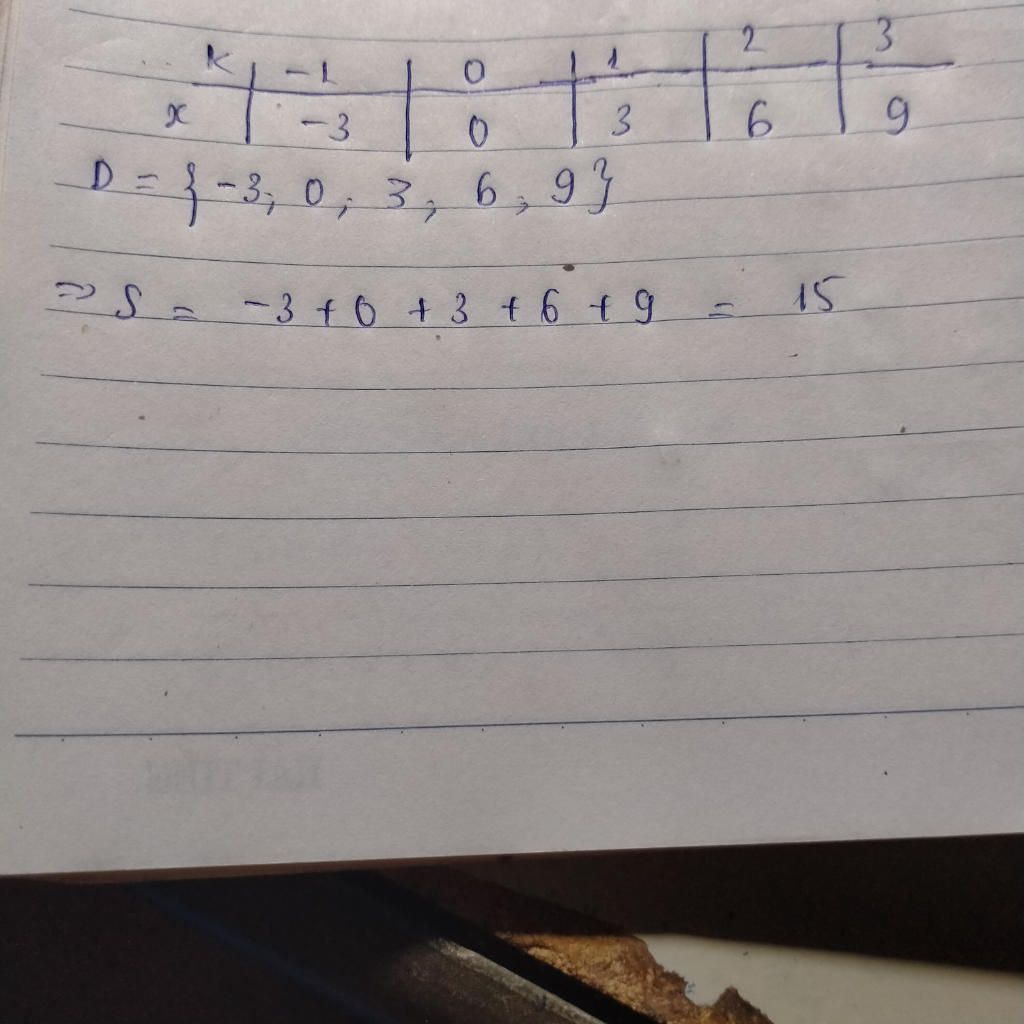 k | -1 | 0 | 1 | 2 | 3
x | -3 | 0 | 3 | 6 | 9
D = {-3, 0, 3, 6, 9}
⇒ S = -3 + 0 + 3 + 6 + 9 = 15